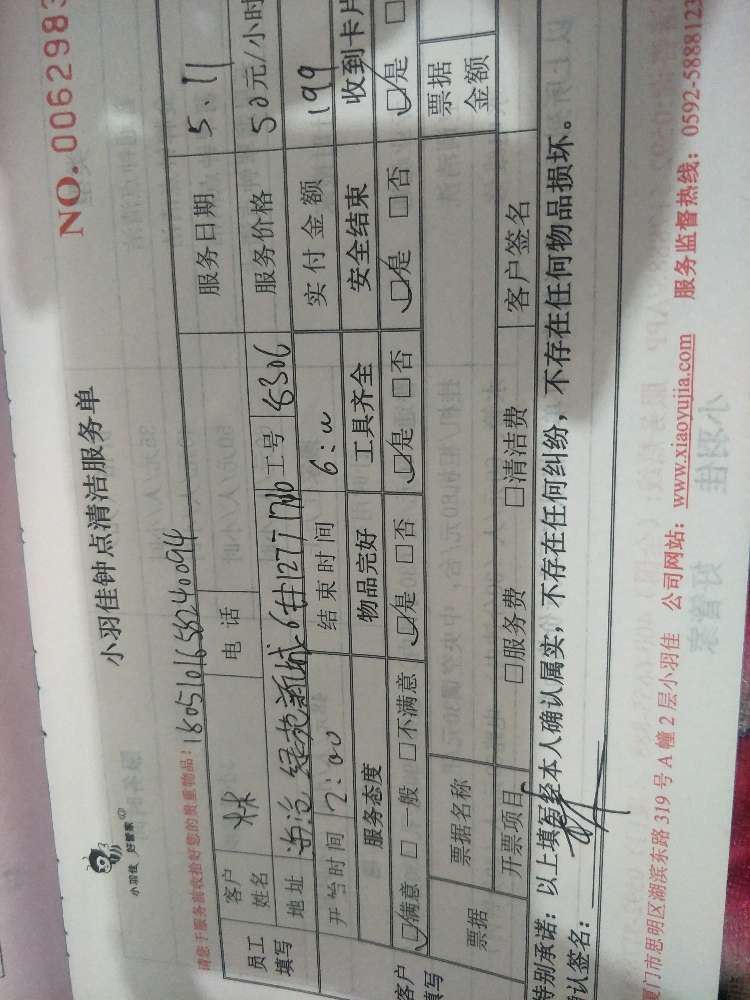 小羽佳 好管家
小羽佳钟点清洁服务单
NO. 0062983
请您于服务前收拾好您的贵重物品!
1805101658240094
员工填写
客户姓名 林 电话 服务日期 5.11
地址 工号 8306 服务价格 50元/小时
开始时间 2:00 结束时间 6:00 实付金额 199
客户填写
服务态度 物品完好 工具齐全 安全结束 收到卡片
☑满意 □一般 □不满意 ☑是 □否 ☑是 □否 ☑是 □否 ☑是 □
票据 票据名称 票据金额
开票项目 □服务费 □清洁费 客户签名
特别承诺：以上填写经本人确认属实，不存在任何纠纷，不存在任何物品损坏。
确认签名：
厦门市思明区湖滨东路 319 号 A 幢 2 层小羽佳 公司网站：www.xiaoyujia.com 服务监督热线：0592-5888123